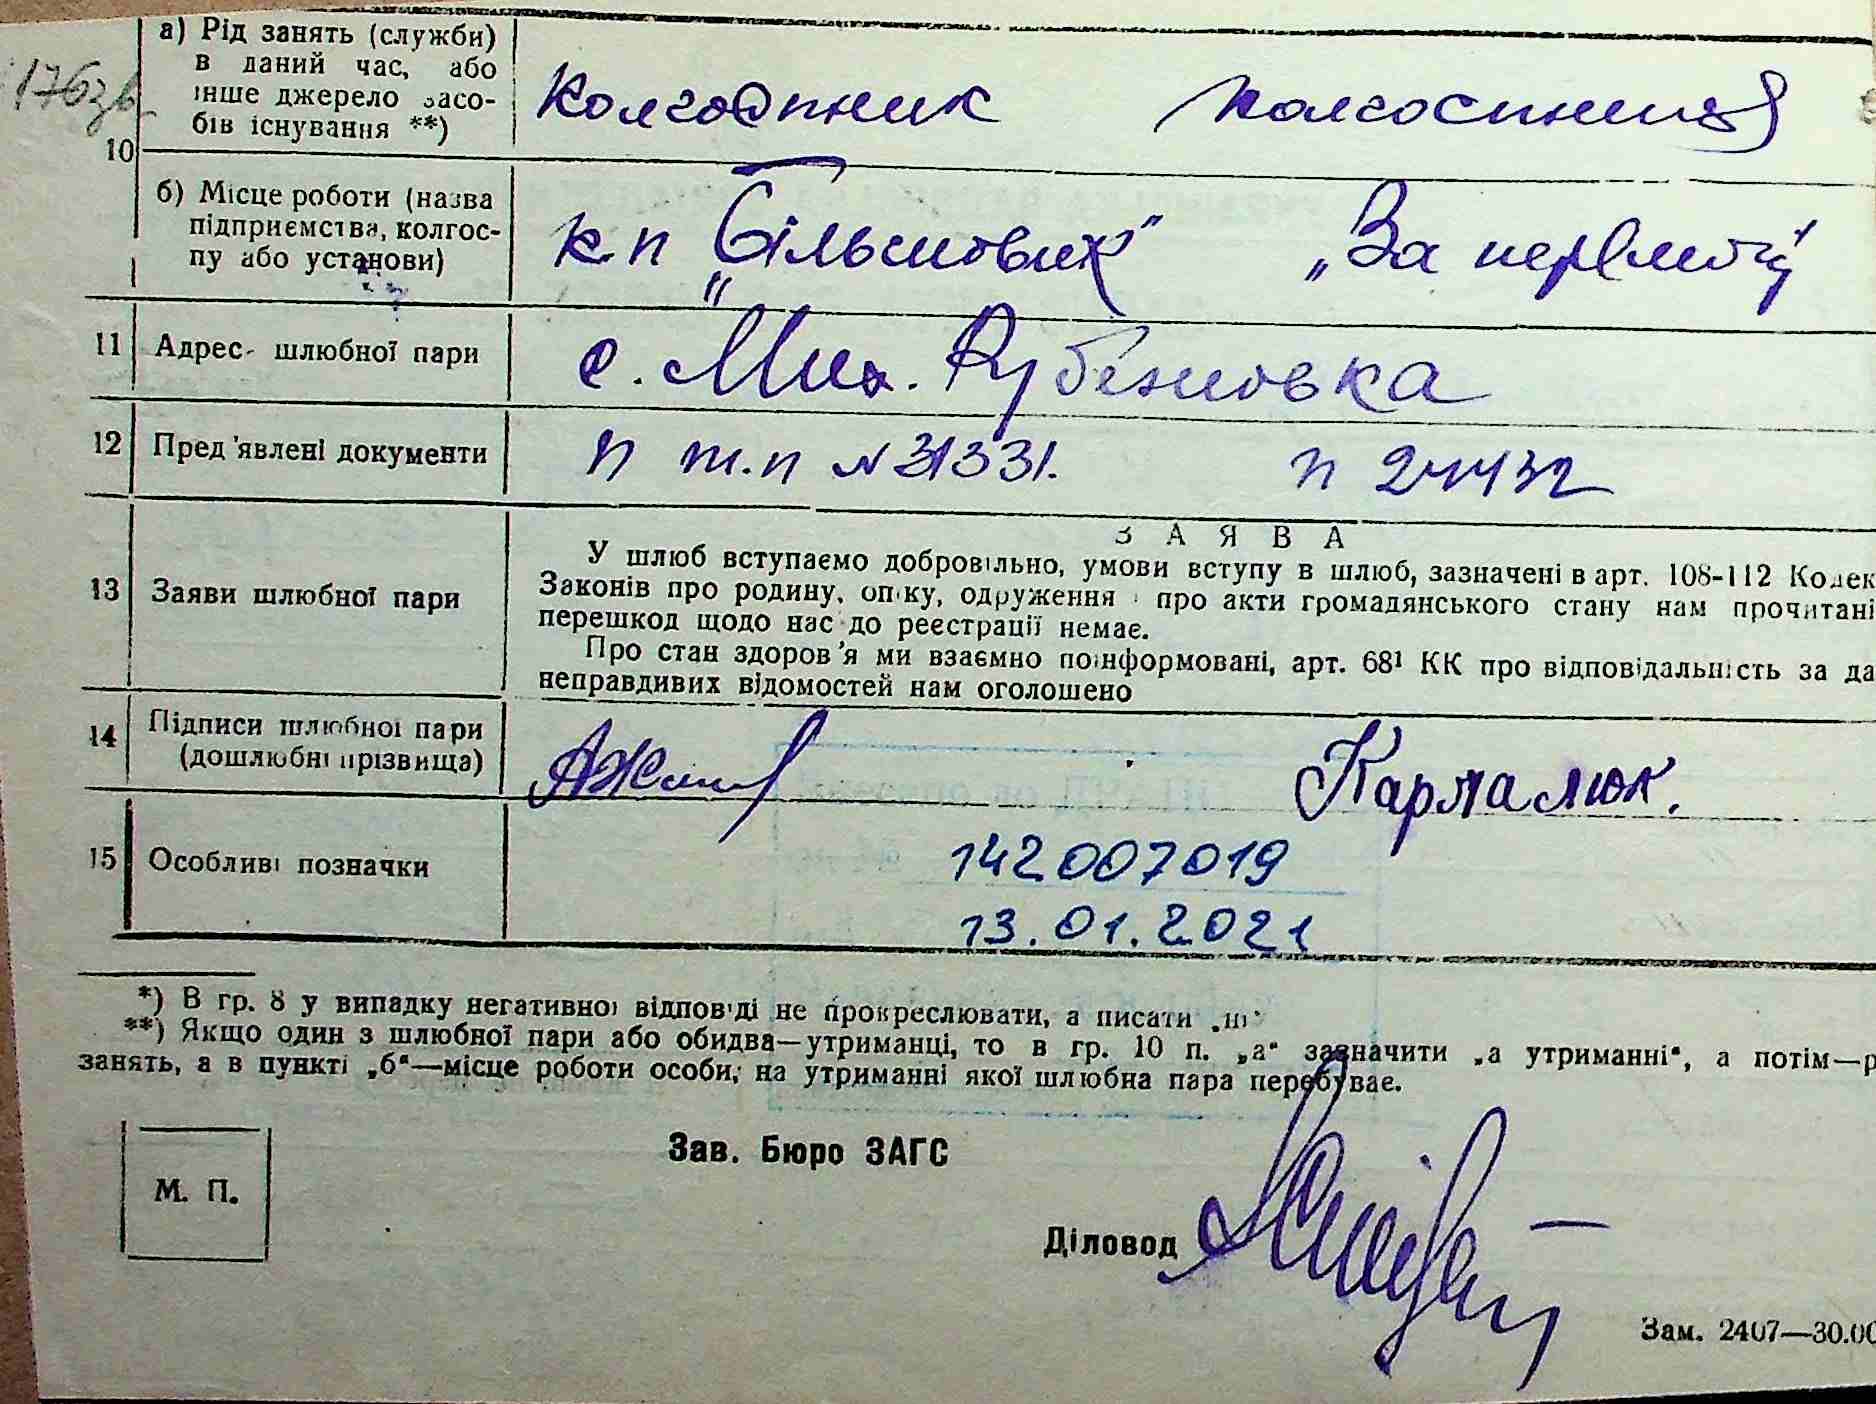 а) Рід занять (служби)
в даний час, або
інше джерело засо-
бів існування **)
Колгоспник колгоспниця
176зв
10
б) Місце роботи (назва
підприємства, колгос-
пу або установи)
к.п „Більшовик" „За перемогу"
11 Адрес- шлюбної пари с. Мих. Рубежовка
12 Пред'явлені документи п т.п №31331. п 24432
З А Я В А
13 Заяви шлюбної пари
У шлюб вступаємо добровільно, умови вступу в шлюб, зазначені в арт. 108-112 Кодек
Законів про родину, опіку, одруження і про акти громадянського стану нам прочитані
перешкод щодо нас до реєстрації немає.
Про стан здоров'я ми взаємно поінформовані, арт. 68¹ КК про відповідальність за да
неправдивих відомостей нам оголошено
14 Підписи шлюбної пари
(дошлюбні прізвища)
Кармалюк.
15 Особливі позначки
142007019
13.01.2021
*) В гр. 8 у випадку негативної відповіді не прокреслювати, а писати „ні"
**) Якщо один з шлюбної пари або обидва—утриманці, то в гр. 10 п. „а" зазначити „а утриманні", а потім—р
занять, а в пункті „б"—місце роботи особи; на утриманні якої шлюбна пара перебуває.
Зав. Бюро ЗАГС
М. П.
Діловод
Зам. 2407—30.00